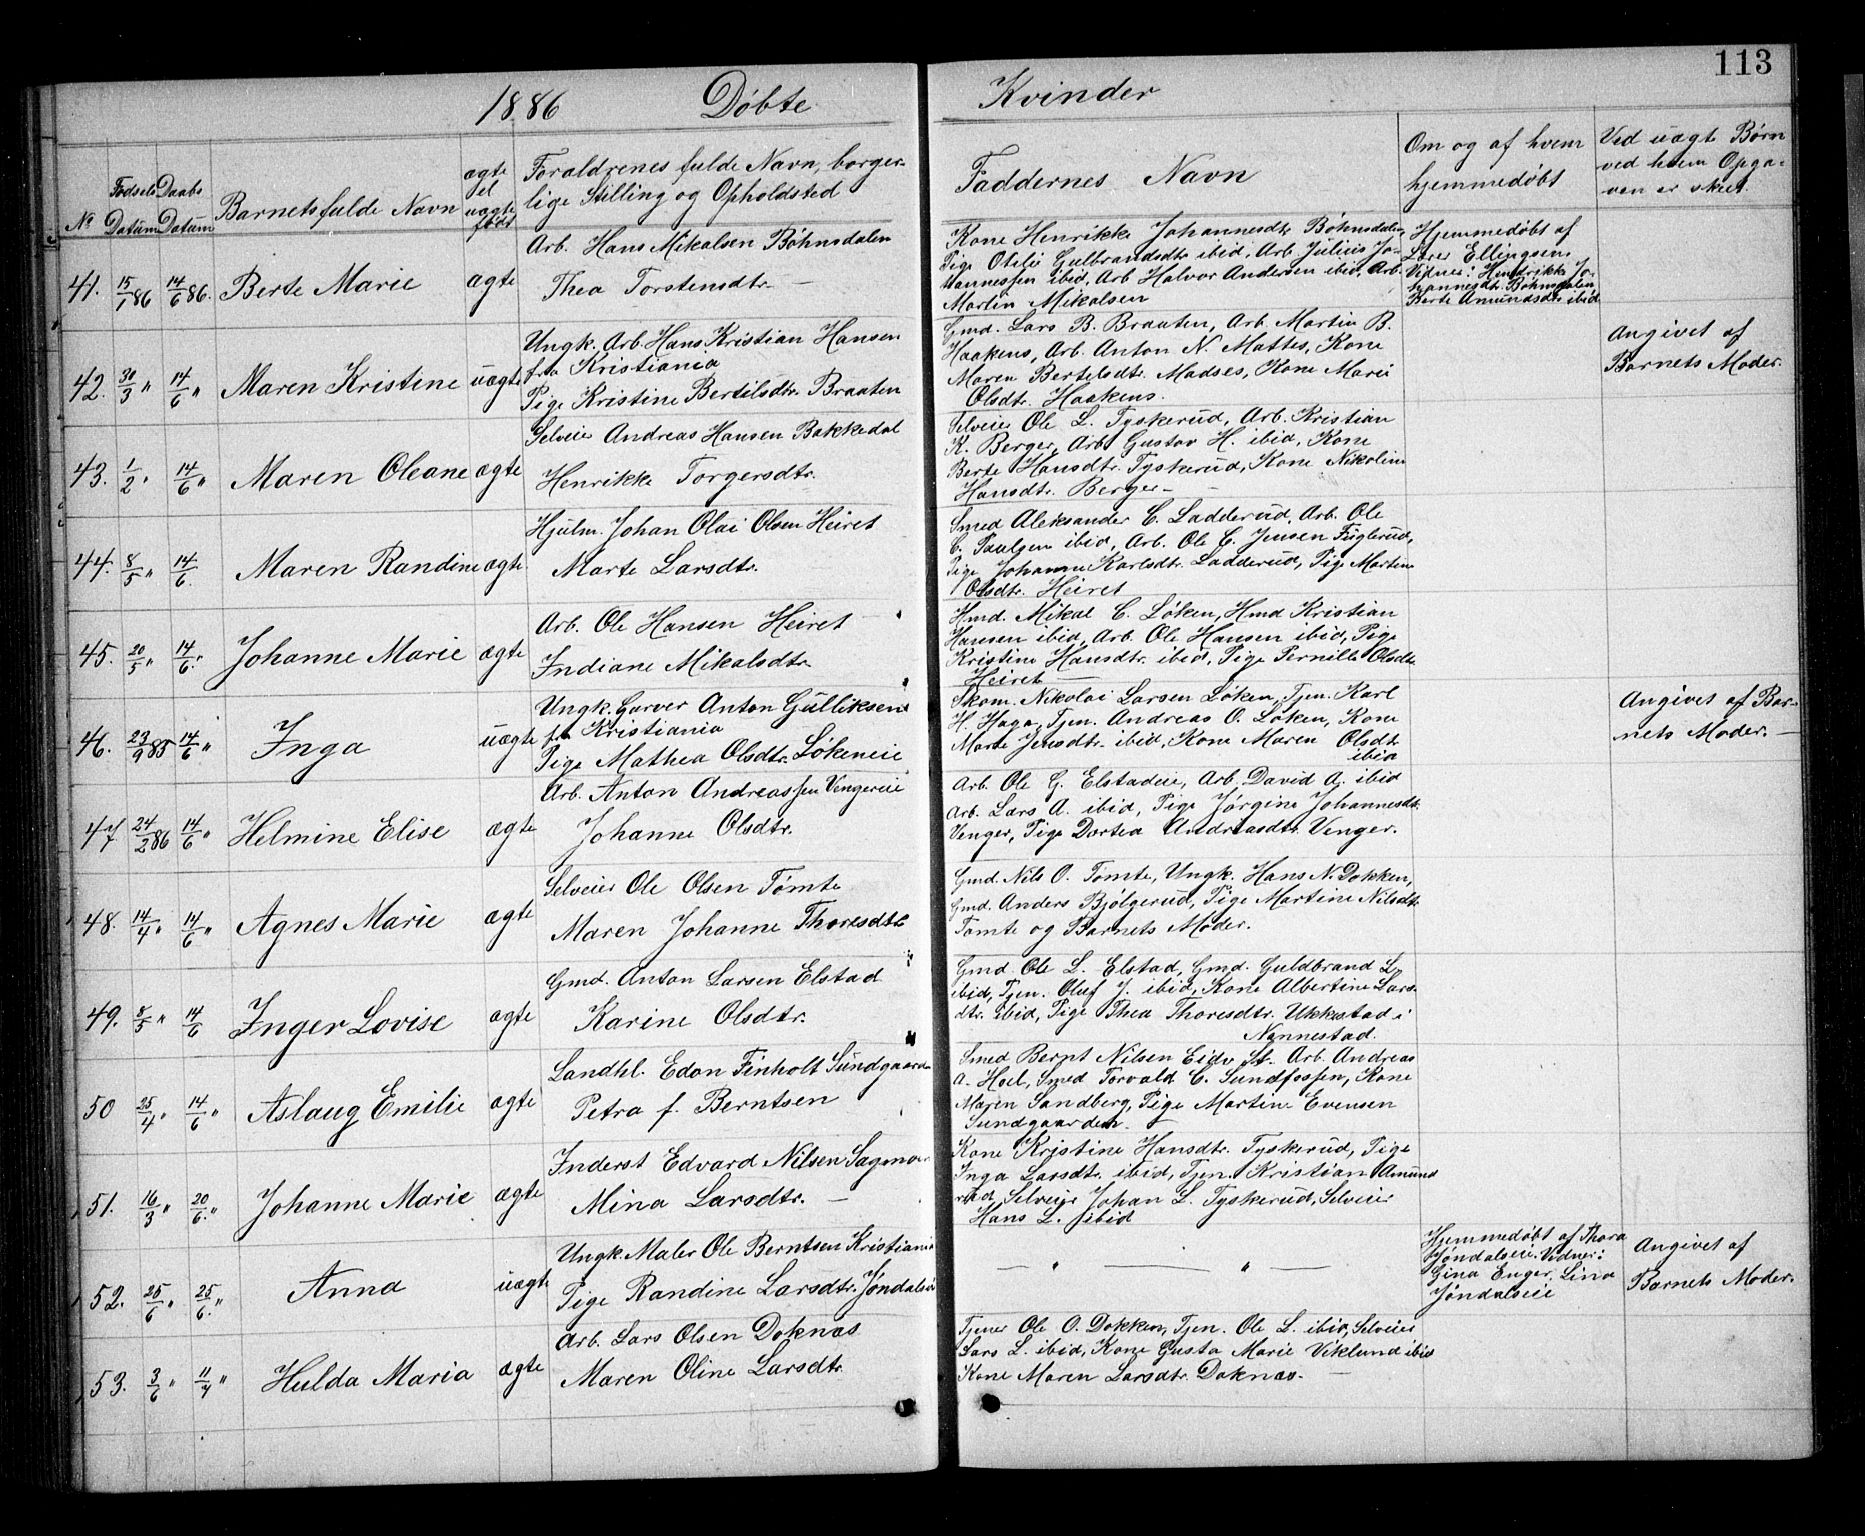 113
1886 Döbte Kvinder
No
Fødsels Datum
Daabs Datum
Barnets fulde Navn
ægte el uægte født
Foraldrenes fulde Navn, borger-
lige Stilling og Opholdsted
Faddernes Navn
Om og af hvem
hjemmedøbt
Ved uægt Børn
ved hvem Opga-
ven er skeet.
41. 15/1 86 14/6 86. Berte Marie ægte
Arb. Hans Mikalsen Bøhnsdalen
Thea Torstensdtr. —
Kone Henrikke Johannesdtr Bøhnsdalen,
Pige Otelie Gulbrandsdtr ibid, Arb. Julius Jo-
hannessen ibid, Arb Halvor Andersen ibid, Arb.
Martin Mikalsen
Hjemmedøbt af
Lærer Ellingsen
Vidner: Hendrikke Jo-
hannesdtr. Bøhnsdalen
Berte Amundsdtr ibid
42. 30/3 " 14/6 " Maren Kristine uægte
Ungk. Arb. Hans Kristian Hansen
fra Kristiania
Pige Kristine Bertilsdtr. Braaten
Gmd. Lars B. Braaten, Arb. Martin B.
Haakens, Arb. Anton N. Mattes, Kone
Maren Bertelsdtr. Madses, Kone Marie
Olsdtr. Haakens.
Angivet af
Barnets Moder.
43. 1/2 " 14/6 " Maren Oleane ægte
Selveier Andreas Hansen Bakkedal
Henrikke Torgersdtr.
Selveier Ole L. Tyskerud, Arb. Kristian
K. Berger, Arb. Gustav H. ibid, Kone
Berte Hansdtr. Tyskerud, Kone Nikoline
Hansdtr. Berger —
44. 8/5 " 14/6. Maren Randine ægte
Hjulm. Johan Olai Olsen Heiret
Marte Larsdtr.
Smed Aleksander C. Ladderud, Arb. Ole
C. Paulsen ibid, Arb. Ole C. Jensen Fuglerud,
Pige Johanne Karlsdtr. Ladderud, Pige Martine
Olsdtr. Heiret
45. 20/5 " 14/6. " Johanne Marie ægte
Arb. Ole Hansen Heiret —
Indiane Mikalsdtr.
Hmd. Mikal C. Løken, Hmd Kristian
Hansen ibid, Arb. Ole Hansen ibid, Pige
Kristine Hansdtr. ibid, Pige Pernille Olsdtr.
Heiret —
46. 23/9 85 14/6 " Inga uægte
Ungk. Garver Anton Gulliksen
fra Kristiania
Pige Mathea Olsdtr. Løkeneie
Skom. Nikolai Larsen Løken, Tjen. Karl
H. Haga, Tjen. Andreas O. Løken, Kone
Marte Jensdtr. ibid, Kone Maren Olsdtr
ibid
Angivet af Bar-
nets Moder. —
47. 24/2 86 14/6 " Helmine Elise ægte
Arb. Anton Andreassen Vengereie
Johanne Olsdtr.
Arb. Ole G. Elstadeie, Arb. David A. ibid
Arb. Lars A. ibid, Pige Jørgine Johannesdtr.
Venger, Pige Dortea Andreasdtr. Venger.
48. 14/4 " 14/6 " Agnes Marie ægte
Selveier Ole Olsen Tömte
Maren Johanne Thoresdtr
Gmd. Nils O. Tømte, Ungk. Hans N. Dokken,
Gmd. Anders Bjølgerud, Pige Martine Nilsdtr.
Tømte og Barnets Moder.
49. 5/5 " 14/6 Inger Lovise ægte
Gmd. Anton Larsen Elstad
Karine Olsdtr.
Gmd. Ole L. Elstad, Gmd. Guldbrand L.
ibid, Tjen. Oluf J. ibid, Kone Albertine Lars-
dtr. ibid, Pige Thea Thoresdtr. Ukkestad i
Nannestad.
50 25/4 " 14/6 " Aslaug Emilie ægte
Landhl. Edon Finholt Sundgaarden
Petra f. Berntsen
Smed Bernt Nilsen Eidv. St. Arb. Andreas
A. Hoel, Smed Torvald C. Sundfossen, Kone
Maren Sandberg, Pige Martine Evensen
Sundgaarden. —
51. 16/3 " 20/6. " Johanne Marie ægte
Inderst Edvard Nilsen Sagmoen
Mina Larsdtr. —
Kone Kristine Hansdtr. Tyskerud, Pige
Inga Larsdtr. ibid, Tjen. Kristian Amund
rud, Selveier Johan L. Tyskerud, Selveier
Hans L. ibid
52. 25/6 " 25/6. " Anna uægte
Ungk. Maler Ole Berntsen Kristiania
Pige Randine Larsdtr. Jøndaleie
— " — " —
Hjemmedøbt af Thora
Jöndalseie. Vidner:
Gina Enger, Lina
Jöndalseie
Angivet af
Barnets Moder.
53. 3/6 " 11/7 " Hulda Maria ægte
Arb. Lars Olsen Doknæs
Maren Oline Larsdtr.
Tjener Ole O. Dokken, Tjen. Ole L. ibid, Selveier
Lars L. ibid, Kone Gusta Marie Viklund ibid
Kone Maren Larsdtr. Doknæs. —